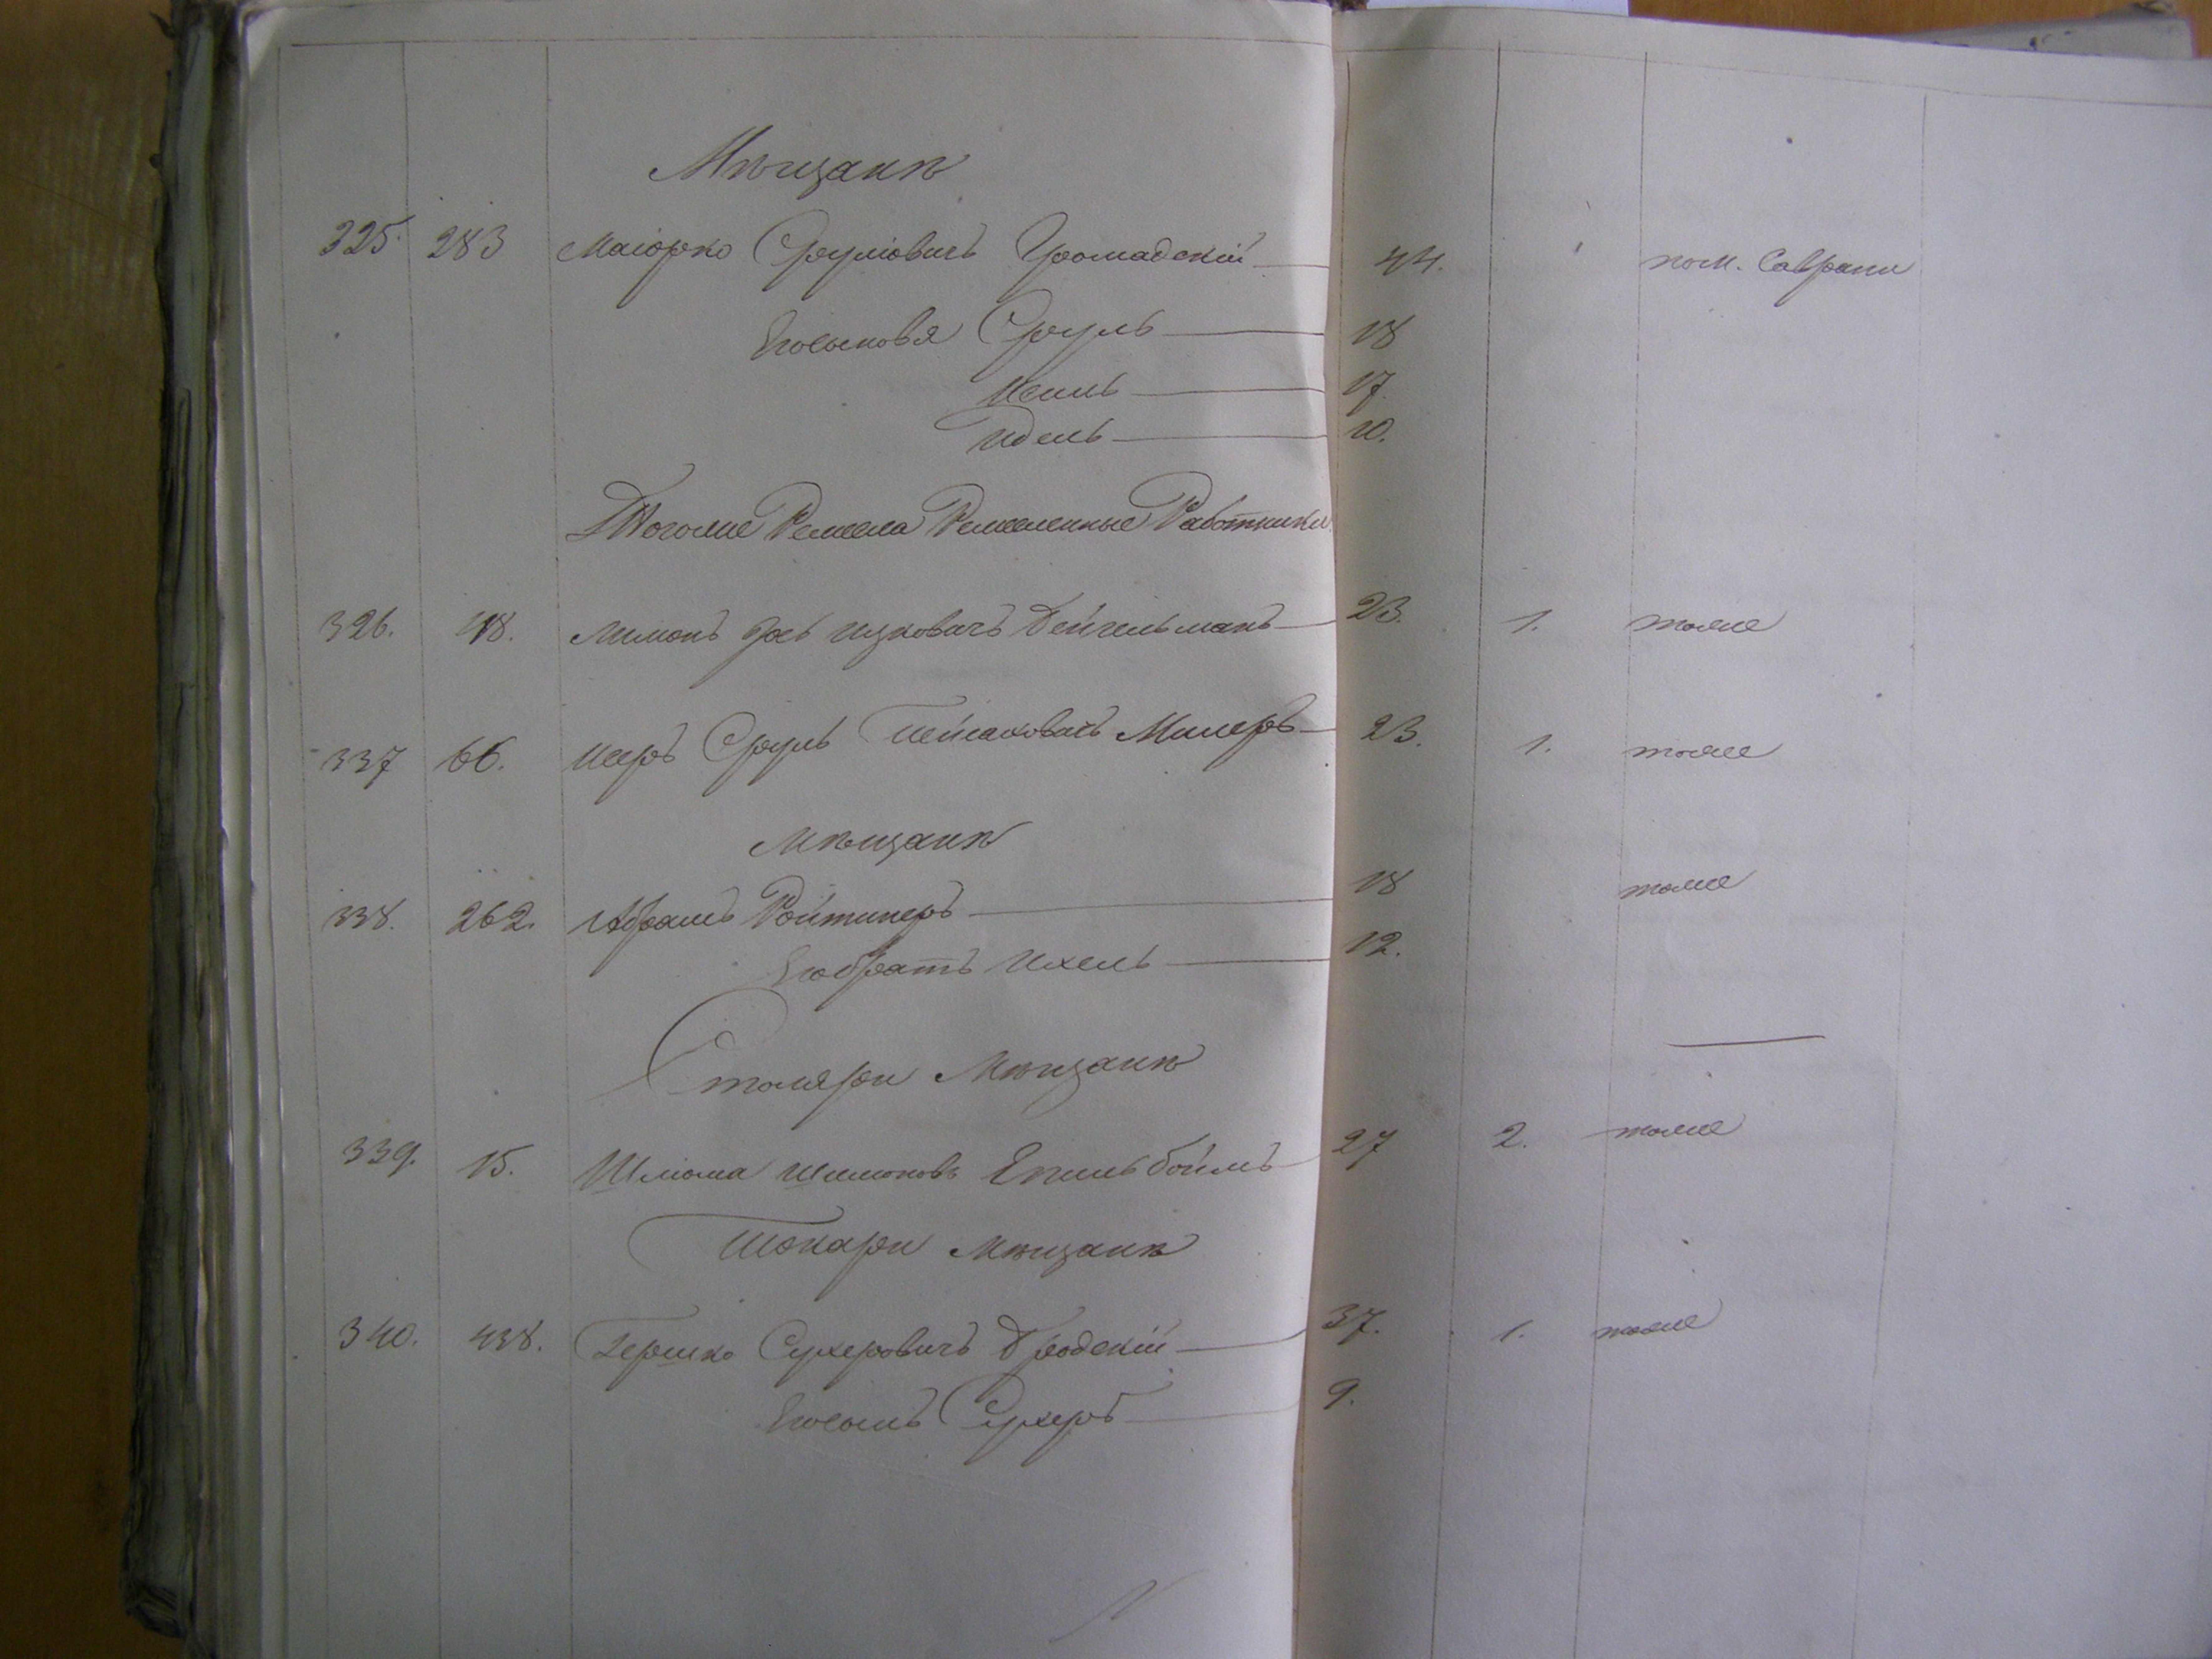 Мѣщанѣ
325. 283 Маіорко Сруліовичъ Громадскій 44. пом. Саврани
Егосыновя Сруль 18
17
Идель 10.
Тогоже Ремесла Ремесленные Работники
326. 48. Лимонъ Іосъ Ицковичъ 23. 1. тоже
337 66. Мееръ Сруль Милеръ 23. 1. тоже
Мѣщанѣ
338. 262. Абрамъ Ройтинеръ 18 тоже
Егобратъ Ихель 12.
Столяри Мѣщанѣ
339. 15. Шлюма Шимоновъ 27 2. тоже
Токари Мѣщанѣ
340. 438. Гершко Сухеровичъ Бродскій 37. 1. тоже
Егосынъ Сухеръ 9.